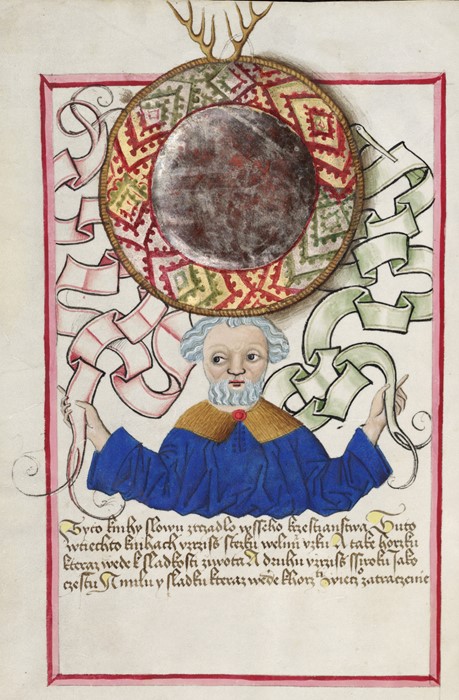 Tyto knihy slowu zrzadlo wsseho krzestianstwa Tuto
wtiechto knihach vzrziss stezku welmi vzku A take horzku
kteraz wede k sladkosti ziwota A druhu vzrziss ssiroku Jako
czestu A milu y sladku kteraz wede khorz wiecz zatraczenie